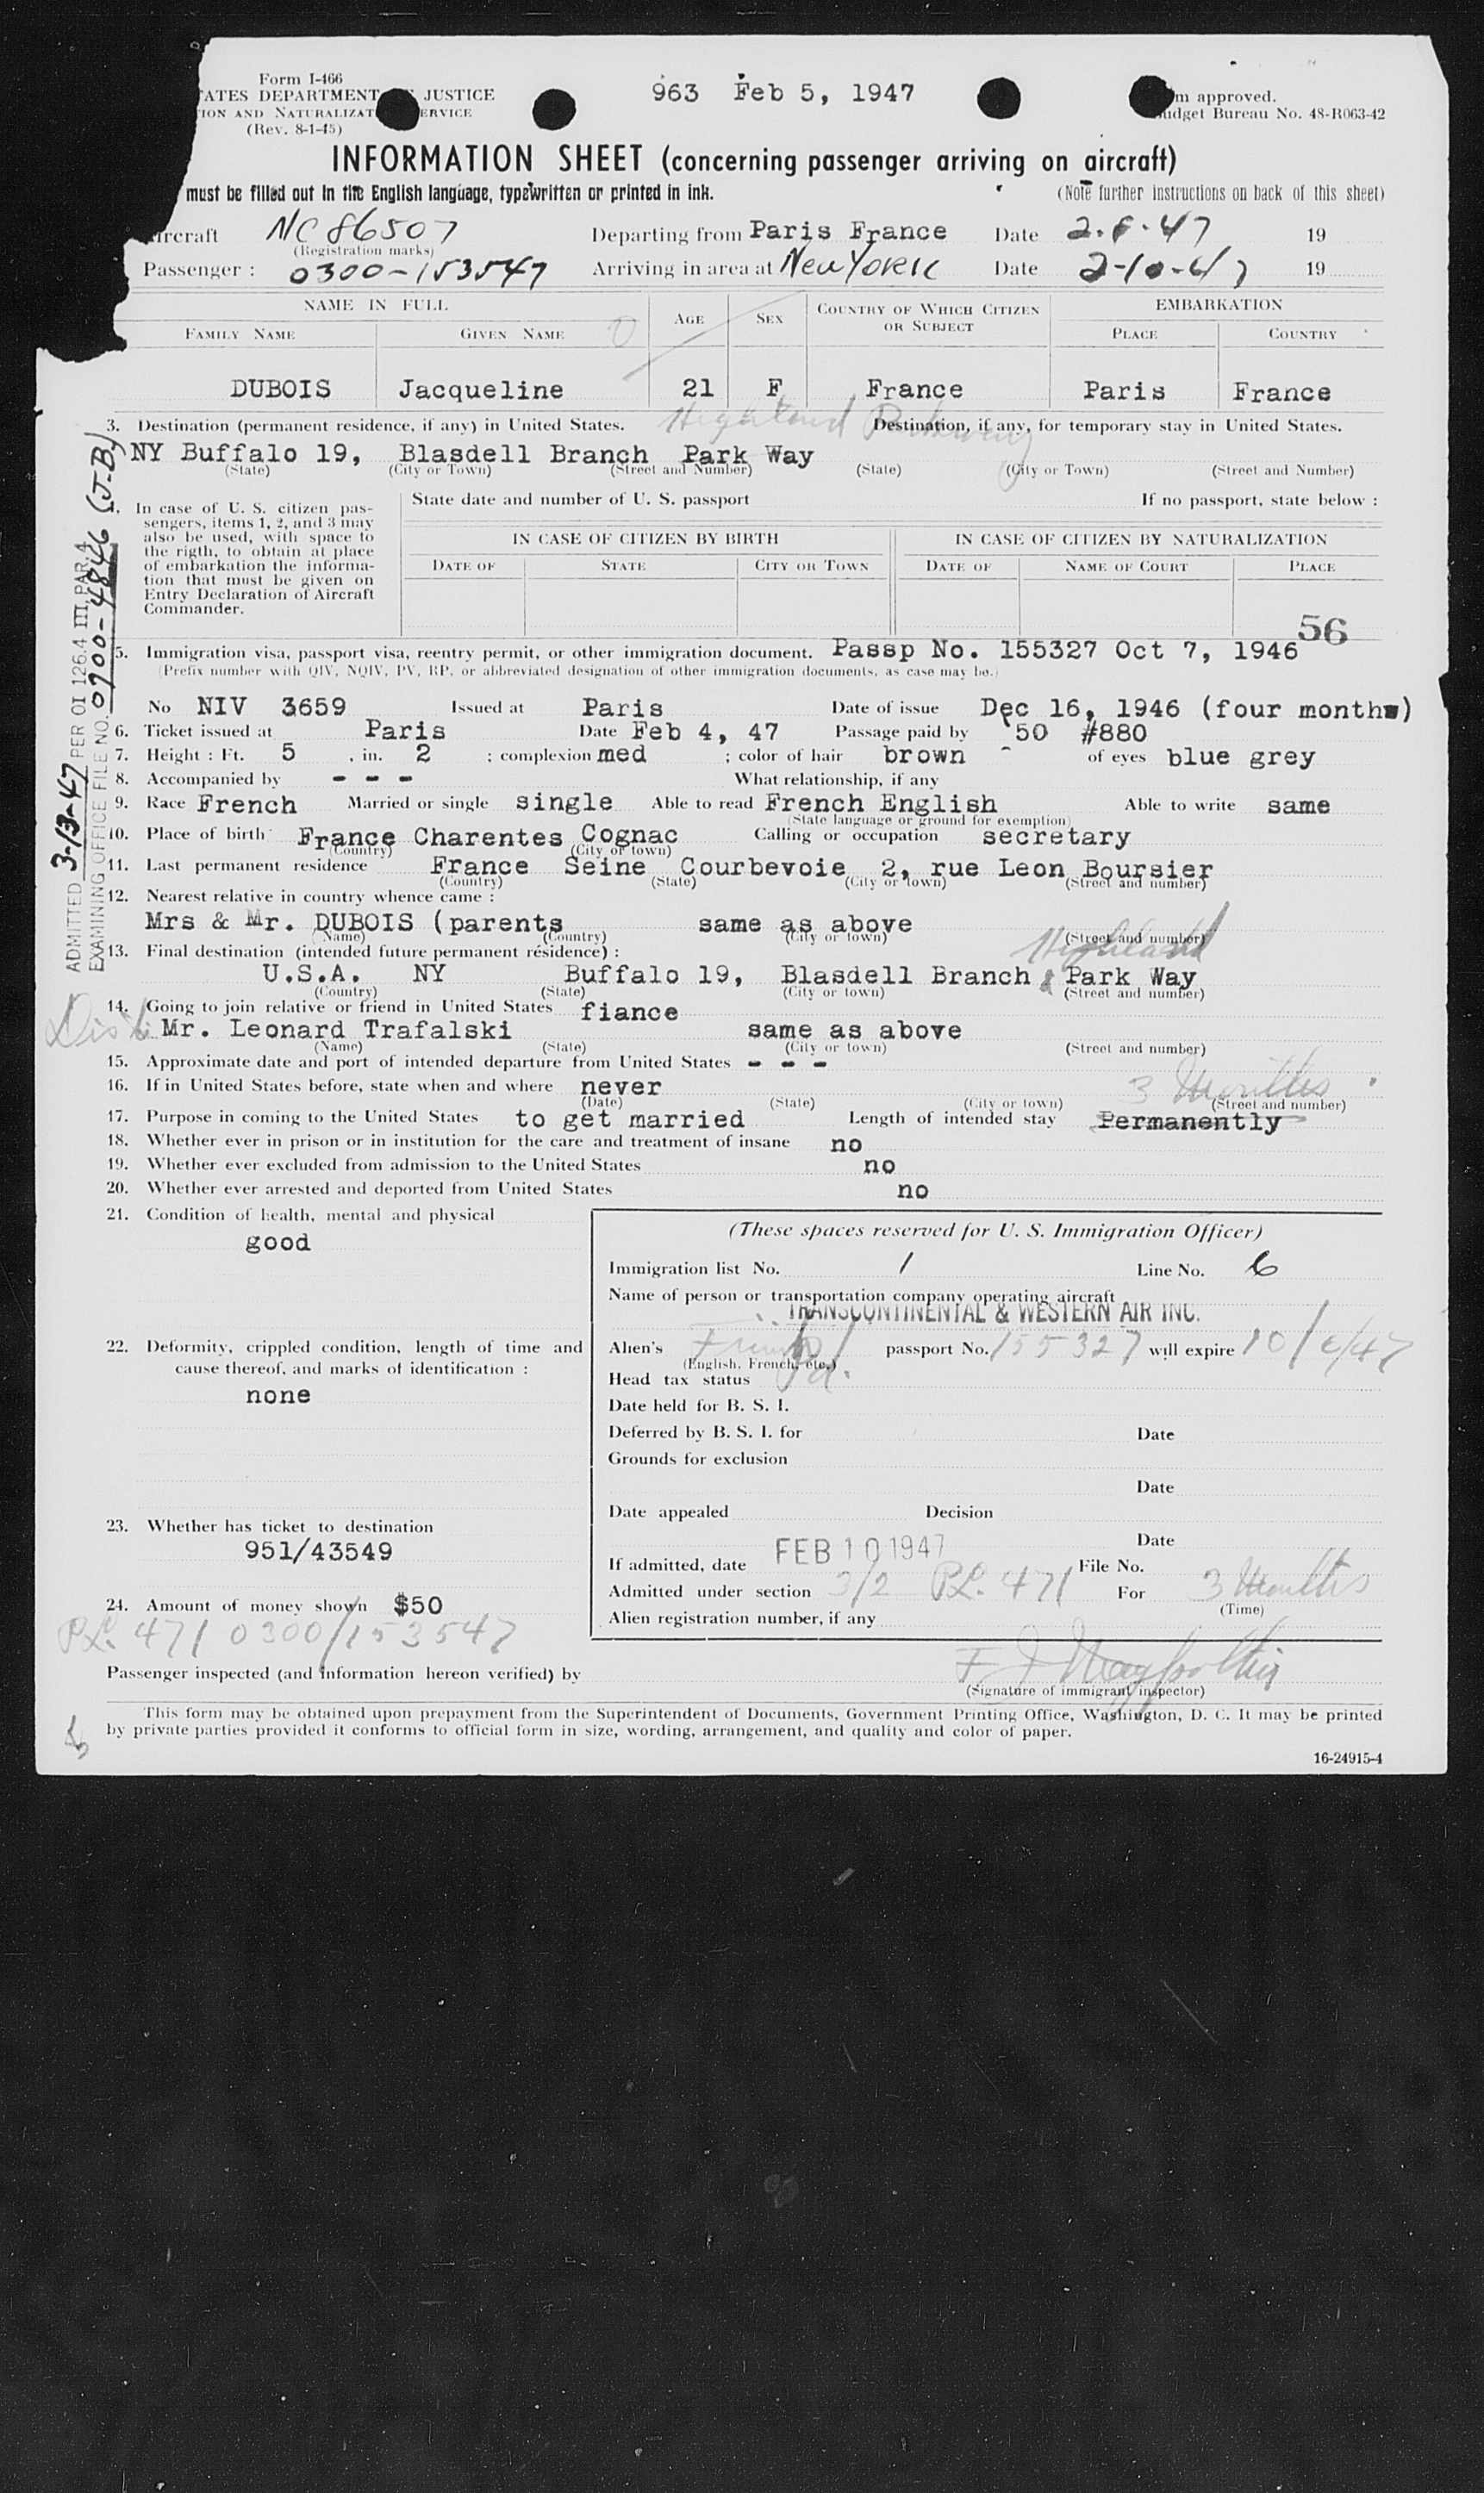 Form I-466
963 Feb 5, 1947
ATES DEPARTMENT JUSTICE
m approved.
ION AND NATURALIZAT ERVICE
udget Bureau No. 48-R063-42
(Rev. 8-1-45)
INFORMATION SHEET (concerning passenger arriving on aircraft)
must be filled out in the English language, typewritten or printed in ink.
(Note further instructions on back of this sheet)
ircraft NC 86507 Departing from Paris France Date 19
(Registration marks)
Passenger : 0300-153547 Arriving in area at New York Date 2-10-47 19
NAME IN FULL AGE SEX COUNTRY OF WHICH CITIZEN OR SUBJECT EMBARKATION
FAMILY NAME GIVEN NAME PLACE COUNTRY
DUBOIS Jacqueline 21 F France Paris France
3. Destination (permanent residence, if any) in United States. Highland Destination, if any, for temporary stay in United States.
NY Buffalo 19, Blasdell Branch Park Way
(State) (City or Town) (Street and Number) (State) (City or Town) (Street and Number)
In case of U. S. citizen pas-
sengers, items 1, 2, and 3 may
also be used, with space to
the rigth, to obtain at place
of embarkation the informa-
tion that must be given on
Entry Declaration of Aircraft
Commander.
State date and number of U. S. passport If no passport, state below :
IN CASE OF CITIZEN BY BIRTH IN CASE OF CITIZEN BY NATURALIZATION
DATE OF STATE CITY OR TOWN DATE OF NAME OF COURT PLACE
56
5. Immigration visa, passport visa, reentry permit, or other immigration document. Passp No. 155327 Oct 7, 1946
(Prefix number with QIV, NQIV, PV, RP, or abbreviated designation of other immigration documents, as case may be.)
No NIV 3659 Issued at Paris Date of issue Dec 16, 1946 (four months)
6. Ticket issued at Paris Date Feb 4, 47 Passage paid by 50 #880
7. Height : Ft. 5 , in. 2 ; complexion med ; color of hair brown of eyes blue grey
8. Accompanied by - - - What relationship, if any
9. Race French Married or single single Able to read French English Able to write same
(State language or ground for exemption)
10. Place of birth France Charentes Cognac Calling or occupation secretary
(Country) (City or town)
11. Last permanent residence France Seine Courbevoie 2, rue Leon Boursier
(Country) (State) (City or town) (Street and number)
12. Nearest relative in country whence came :
Mrs & Mr. DUBOIS (parents same as above
(Name) (Country) (City or town) (Street and number)
13. Final destination (intended future permanent résidence) : Highland
U.S.A. NY Buffalo 19, Blasdell Branch Park Way
(Country) (State) (City or town) (Street and number)
14. Going to join relative or friend in United States fiance
Mr. Leonard Trafalski same as above
(Name) (State) (City or town) (Street and number)
15. Approximate date and port of intended departure from United States - - -
16. If in United States before, state when and where never
3 Months
(Date) (State) (City or town) (Street and number)
17. Purpose in coming to the United States to get married Length of intended stay Permanently
18. Whether ever in prison or in institution for the care and treatment of insane no
19. Whether ever excluded from admission to the United States no
20. Whether ever arrested and deported from United States no
21. Condition of health, mental and physical
good
22. Deformity, crippled condition, length of time and
cause thereof, and marks of identification :
none
23. Whether has ticket to destination
951/43549
24. Amount of money shown $50
P.L. 471 0300/153547
(These spaces reserved for U. S. Immigration Officer)
Immigration list No. 1 Line No. 6
Name of person or transportation company operating aircraft
TRANSCONTINENTAL & WESTERN AIR INC.
Alien's French passport No. 155327 will expire
(English, French, etc.)
Head tax status
Date held for B. S. I.
Deferred by B. S. I. for Date
Grounds for exclusion
Date
Date appealed Decision
Date
If admitted, date FEB 10 1947 File No.
Admitted under section 3/2 P.L. 471 For 3 Months
(Time)
Alien registration number, if any
Passenger inspected (and information hereon verified) by
(Signature of immigrant inspector)
This form may be obtained upon prepayment from the Superintendent of Documents, Government Printing Office, Washington, D. C. It may be printed
by private parties provided it conforms to official form in size, wording, arrangement, and quality and color of paper.
16-24915-4
ADMITTED 3-13-47 PER OI 126.4 III, PAR. 4
EXAMINING OFFICE FILE NO. 0700-4846 (J-B)